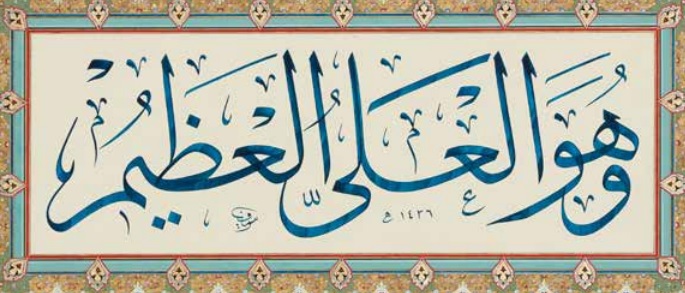 وَهُوَ الْعَلِىُّ الْعَظِيمُ
١٤٣٦ ھ